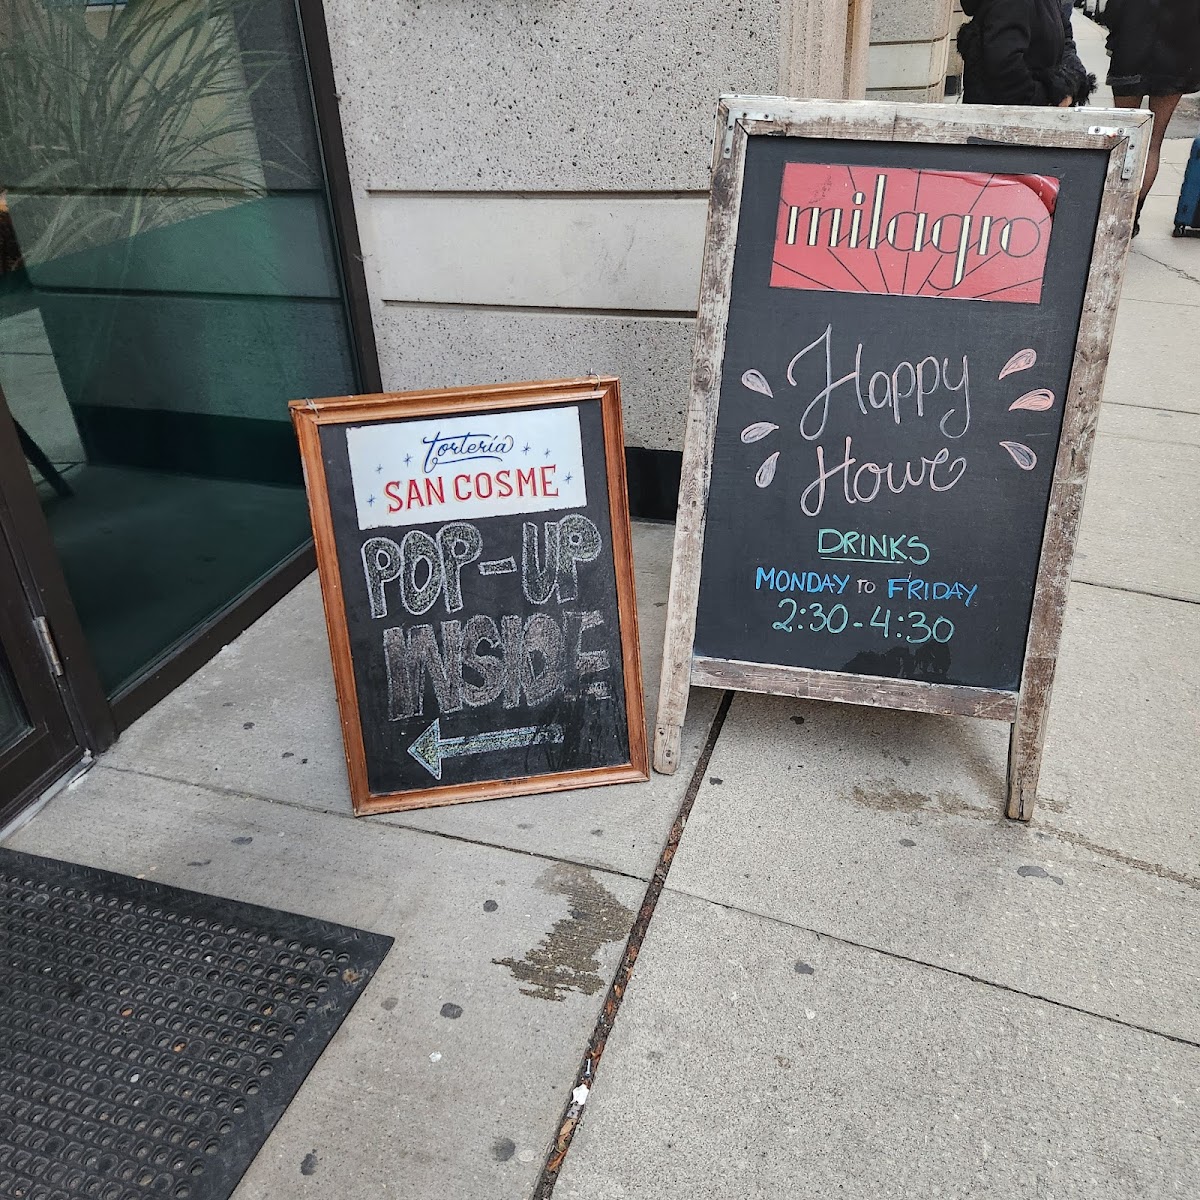 tortería
SAN COSME
POP-UP
INSIDE
milagro
Happy
Howr
DRINKS
MONDAY TO FRIDAY
2:30-4:30